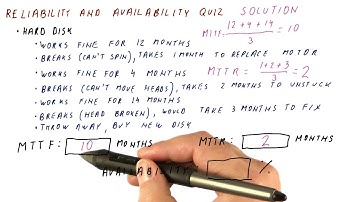 RELIABILITY AND AVAILABILITY QUIZ SOLUTION
• HARD DISK
MTTF: (12+4+14)/3 = 10
• WORKS FINE FOR 12 MONTHS
• BREAKS (CAN'T SPIN), TAKES 1 MONTH TO REPLACE MOTOR
• WORKS FINE FOR 4 MONTHS
MTTR = (1+2+3)/3 = 2
• BREAKS (CAN'T MOVE HEADS), TAKES 2 MONTHS TO UNSTUCK
• WORKS FINE FOR 14 MONTHS
• BREAKS (HEAD BROKEN), WOULD TAKE 3 MONTHS TO FIX
• THROW AWAY, BUY NEW DISK
MTTF: 10 MONTHS MTTR: 2 MONTHS
AVAILABILITY %